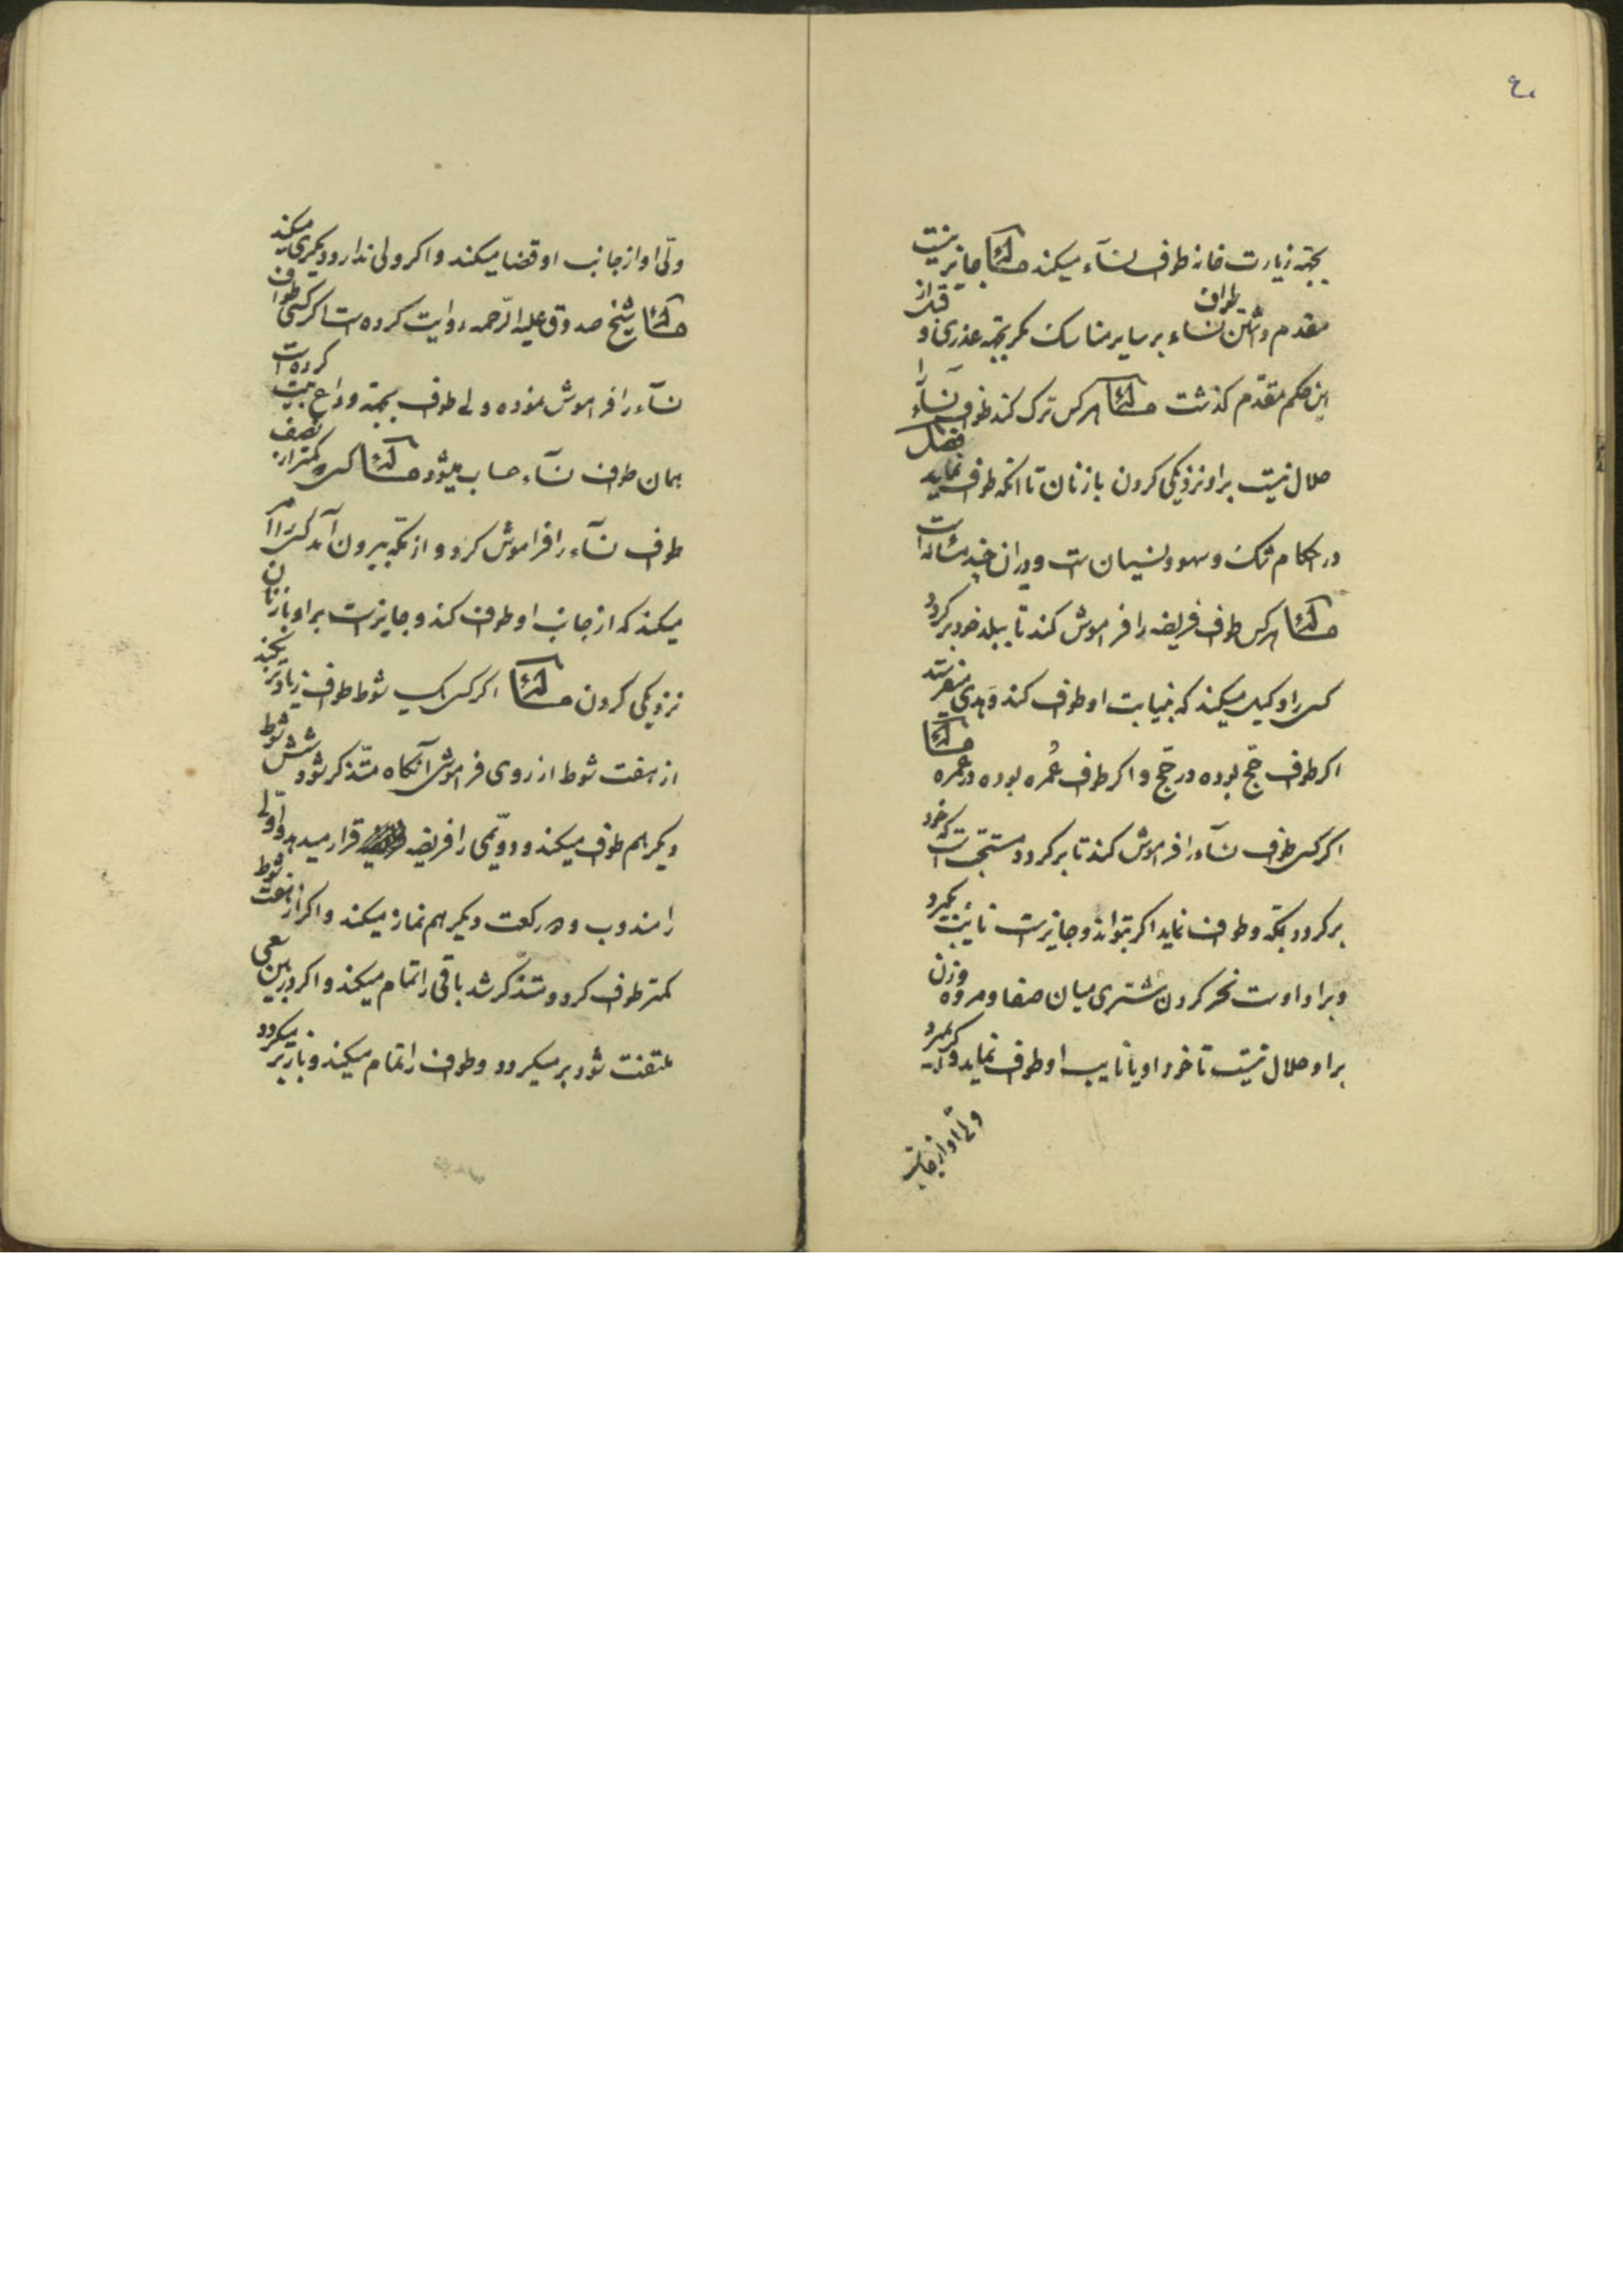 ٤٠
بجهة زیارت خانه طواف نسآء میکند مسئله جایز نیست
مقدم داشتن طواف نساء بر سایر مناسک مگر بجهة عذری و قبل از
این حکم مقدّم گذشت مسئله هر کس ترک کند طواف نسآء را
حلال نیست بر او نزدیکی کردن با زنان تا آنکه طواف نماید فصل
در احکام شک و سهو و نسیان است و در آن چند مسئله است
مسئله هر کس طواف فریضه را فراموش کند تا ببلد خود برگردد
کسی را وکیل میکند که بنیابت او طواف کند و هدی میفرستد
اگر طواف حجّ بوده در حجّ و اگر طواف عُمره بوده در عمره مسئله
اگر کسی طواف نسآء را فراموش کند تا برگردد مستحبّ است که خود
برگردد بمکّه و طواف نماید اگر بتواند و جایز است نائب بگیرد
و بر او است نحر کردن شتری میان صفا و مروه و زن
بر او حلال نیست تا خود او یا نایب او طواف نماید و اگر بمیرد
ولّی او از جانب
ولّی او از جانب او قضا میکند و اگر ولی ندارد دیگری میکند
مسئله شیخ صدوق علیه الرّحمه روایت کرده است اگر کسی طواف
نسآء را فراموش نموده ولی طواف بجهة وداع بیت کرده است
همان طواف نسآء حساب میشود مسئله کسی که کمتر از نصف
طواف نسآء را فراموش کرد و از مکّه بیرون آمد کسی را امر
میکند که از جانب او طواف کند و جایز است بر او با زنان
نزدیکی کردن مسئله اگر کسی یک شوط طواف زیادتر بکند
از هفت شوط از روی فراموشی آنگاه متذکر شود شش شوط
دیگر هم طواف میکند و دوّیمی را فریضه قرار میدهد و اوّلی
را مندوب و دو رکعت دیگر هم نماز میکند و اگر از هفت شوط
کمتر طواف کرد و متذکر شد باقی را تمام میکند و اگر در بین سعی
ملتفت شود بر میگردد و طواف را تمام میکند و باز بر میگردد